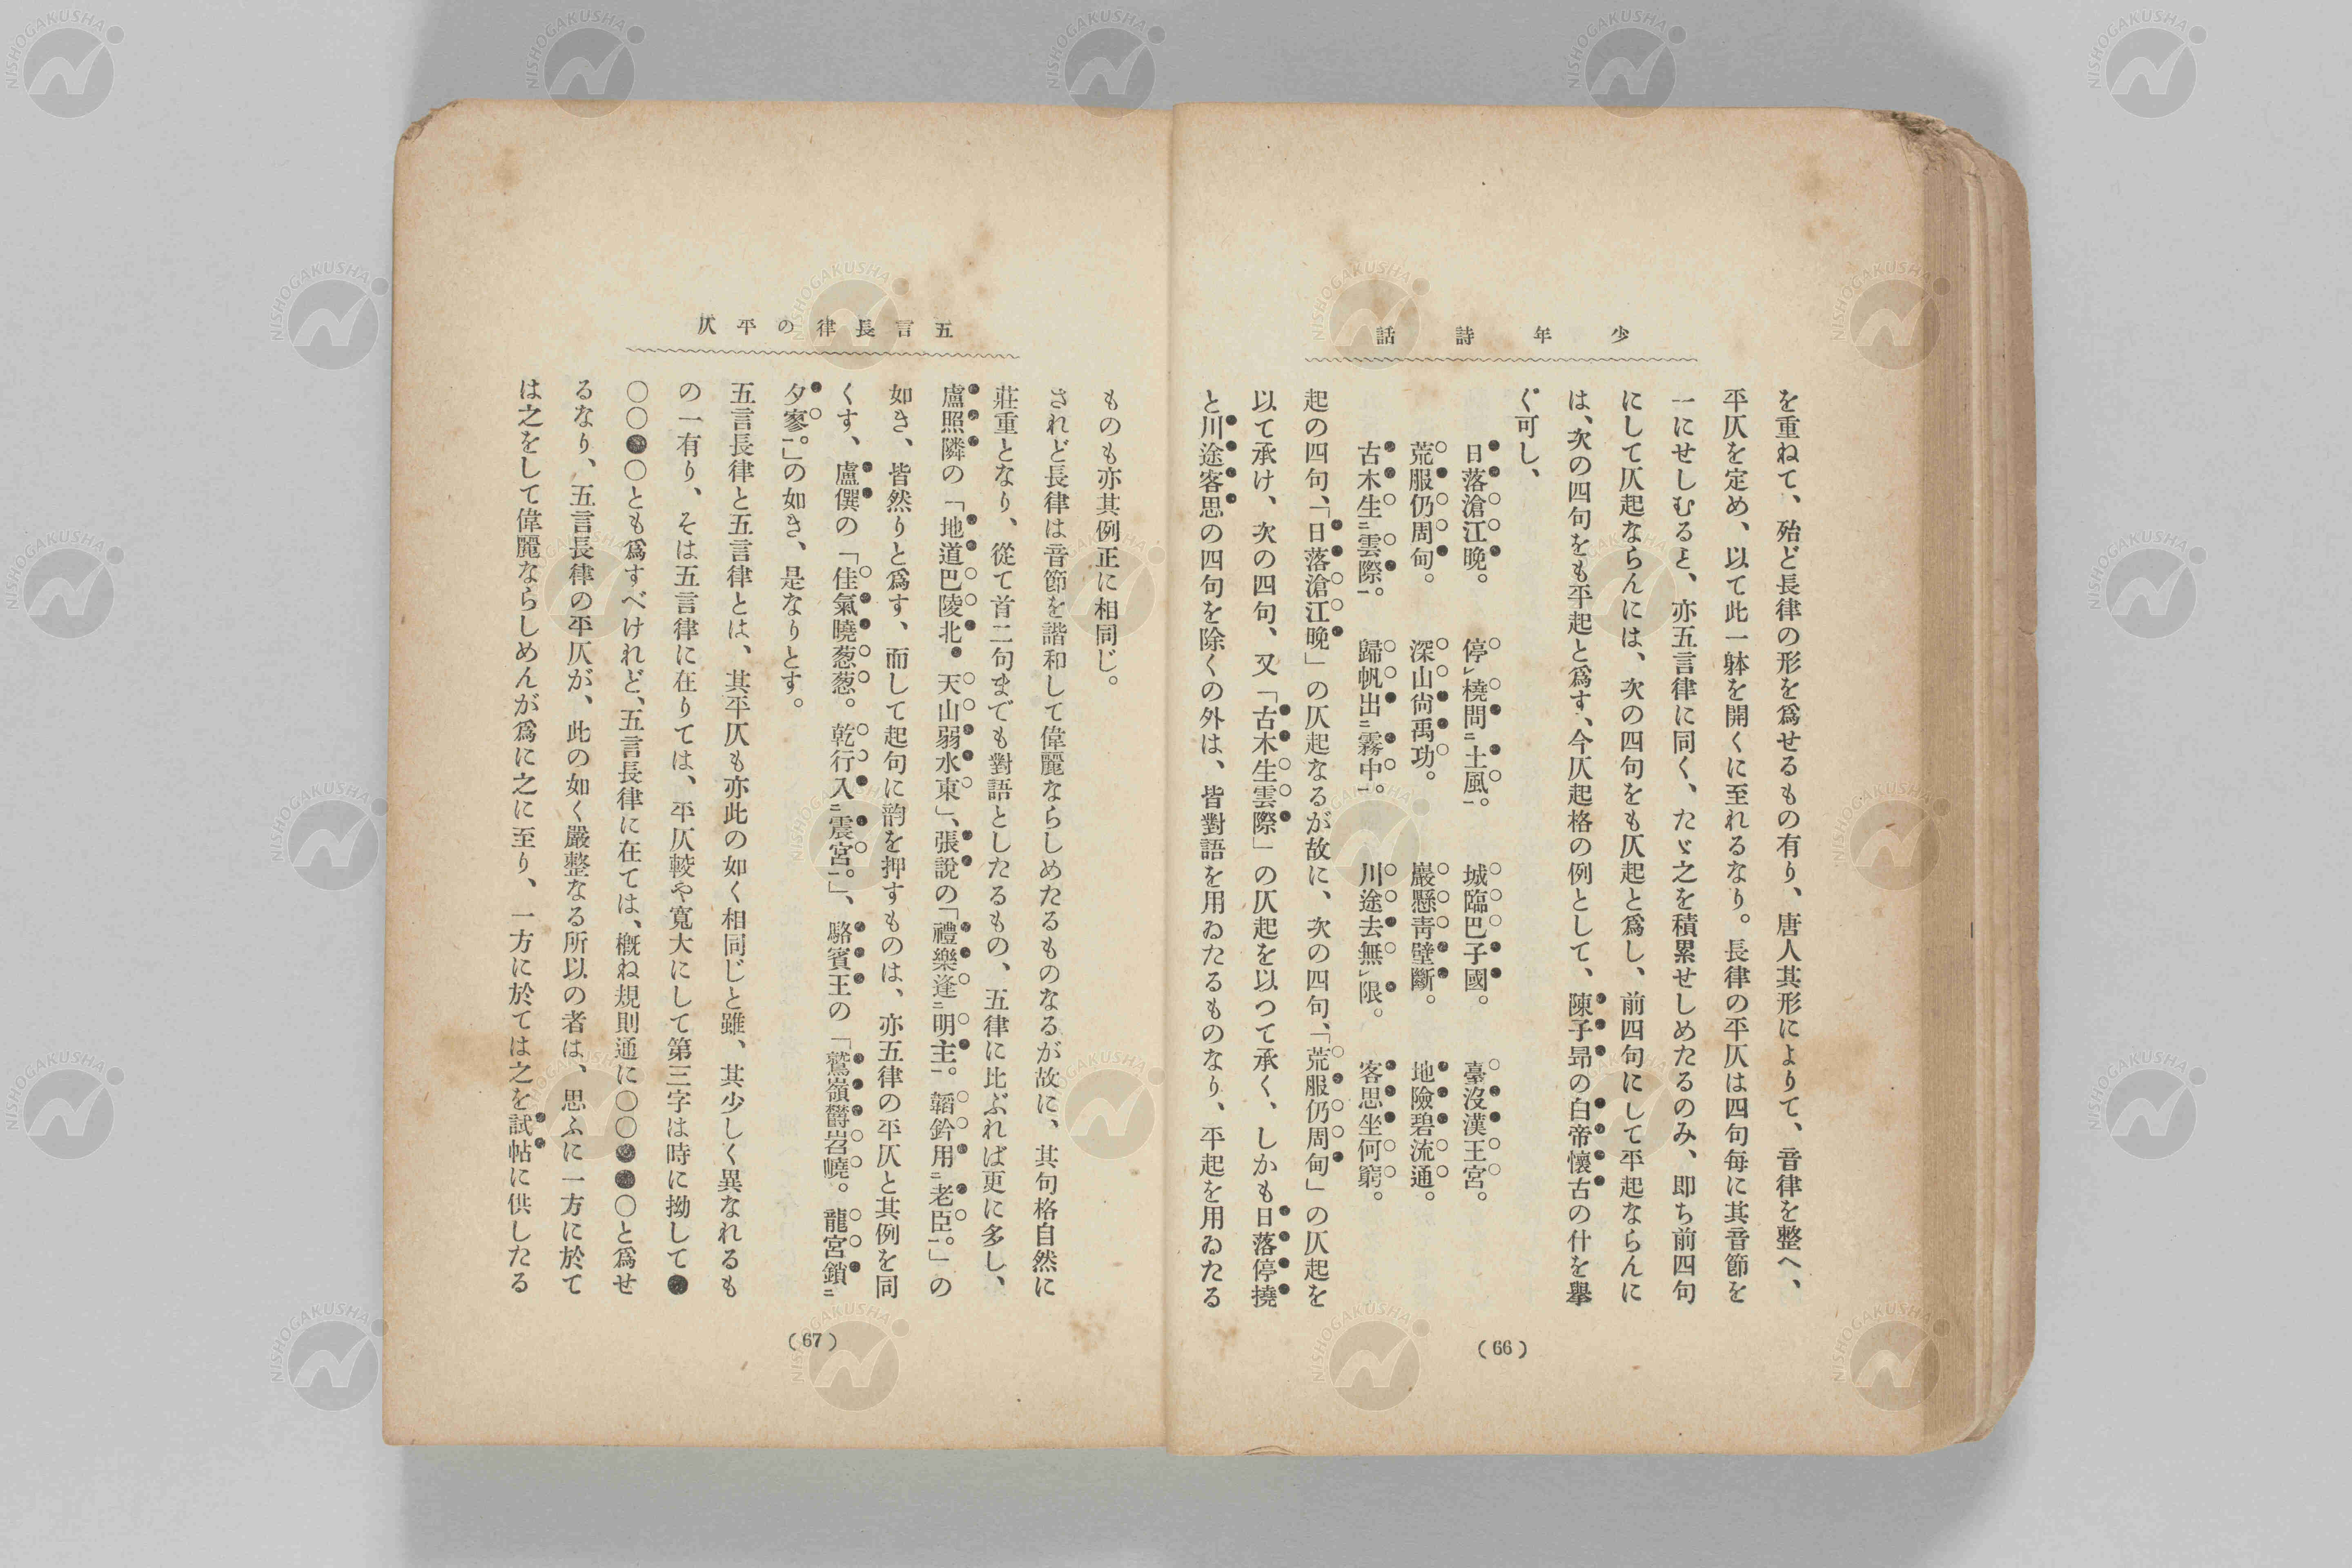 少年詩話
を重ねて、殆ど長律の形を爲せるもの有り、唐人其形によりて、音律を整へ、
平仄を定め、以て此一躰を開くに至れるなり。長律の平仄は四句毎に其音節を
一にせしむると、亦五言律に同く、たゞ之を積累せしめたるのみ、即ち前四句
にして仄起ならんには、次の四句をも仄起と爲し、前四句にして平起ならんに
は、次の四句をも平起と爲す、今仄起格の例として、陳子昻の白帝懷古の什を擧
ぐ可し、
日落滄江晩。 停㆑橈問㆓土風㆒。 城臨巴子國。 臺沒漢王宮。
荒服仍周甸。 深山尙禹功。 巖懸靑壁斷。 地險碧流通。
古木生㆓雲際㆒。 歸帆出㆓霧中㆒。 川途去無㆑限。 客思坐何窮。
起の四句、「日落滄江晩」の仄起なるが故に、次の四句、「荒服仍周甸」の仄起を
以て承け、次の四句、又「古木生雲際」の仄起を以つて承く、しかも日落停撓
と川途客思の四句を除くの外は、皆對語を用ゐたるものなり、平起を用ゐたる
(66)
五言長律の平仄
ものも亦其例正に相同じ。
されど長律は音節を諧和して偉麗ならしめたるものなるが故に、其句格自然に
莊重となり、從て首二句までも對語としたるもの、五律に比ぶれば更に多し、
盧照隣の「地道巴陵北。天山弱水東」、張說の「禮樂逢㆓明主㆒。韜鈐用㆓老臣㆒。」の
如き、皆然りと爲す、而して起句に韵を押すものは、亦五律の平仄と其例を同
くす、盧僎の「佳氣曉葱葱。乾行入㆓震宮㆒。」、駱賓王の「鷲嶺欝岧嶢。龍宮鎖㆓
夕寥㆒。」の如き、是なりとす。
五言長律と五言律とは、其平仄も亦此の如く相同じと雖、其少しく異なれるも
の一有り、そは五言律に在りては、平仄較や寬大にして第三字は時に拗して●
○○●○とも爲すべけれど、五言長律に在ては、槪ね規則通に○○●●○と爲せ
るなり、五言長律の平仄が、此の如く嚴整なる所以の者は、思ふに一方に於て
は之をして偉麗ならしめんが爲に之に至り、一方に於ては之を試帖に供したる
(67)
NISHOGAKUSHA